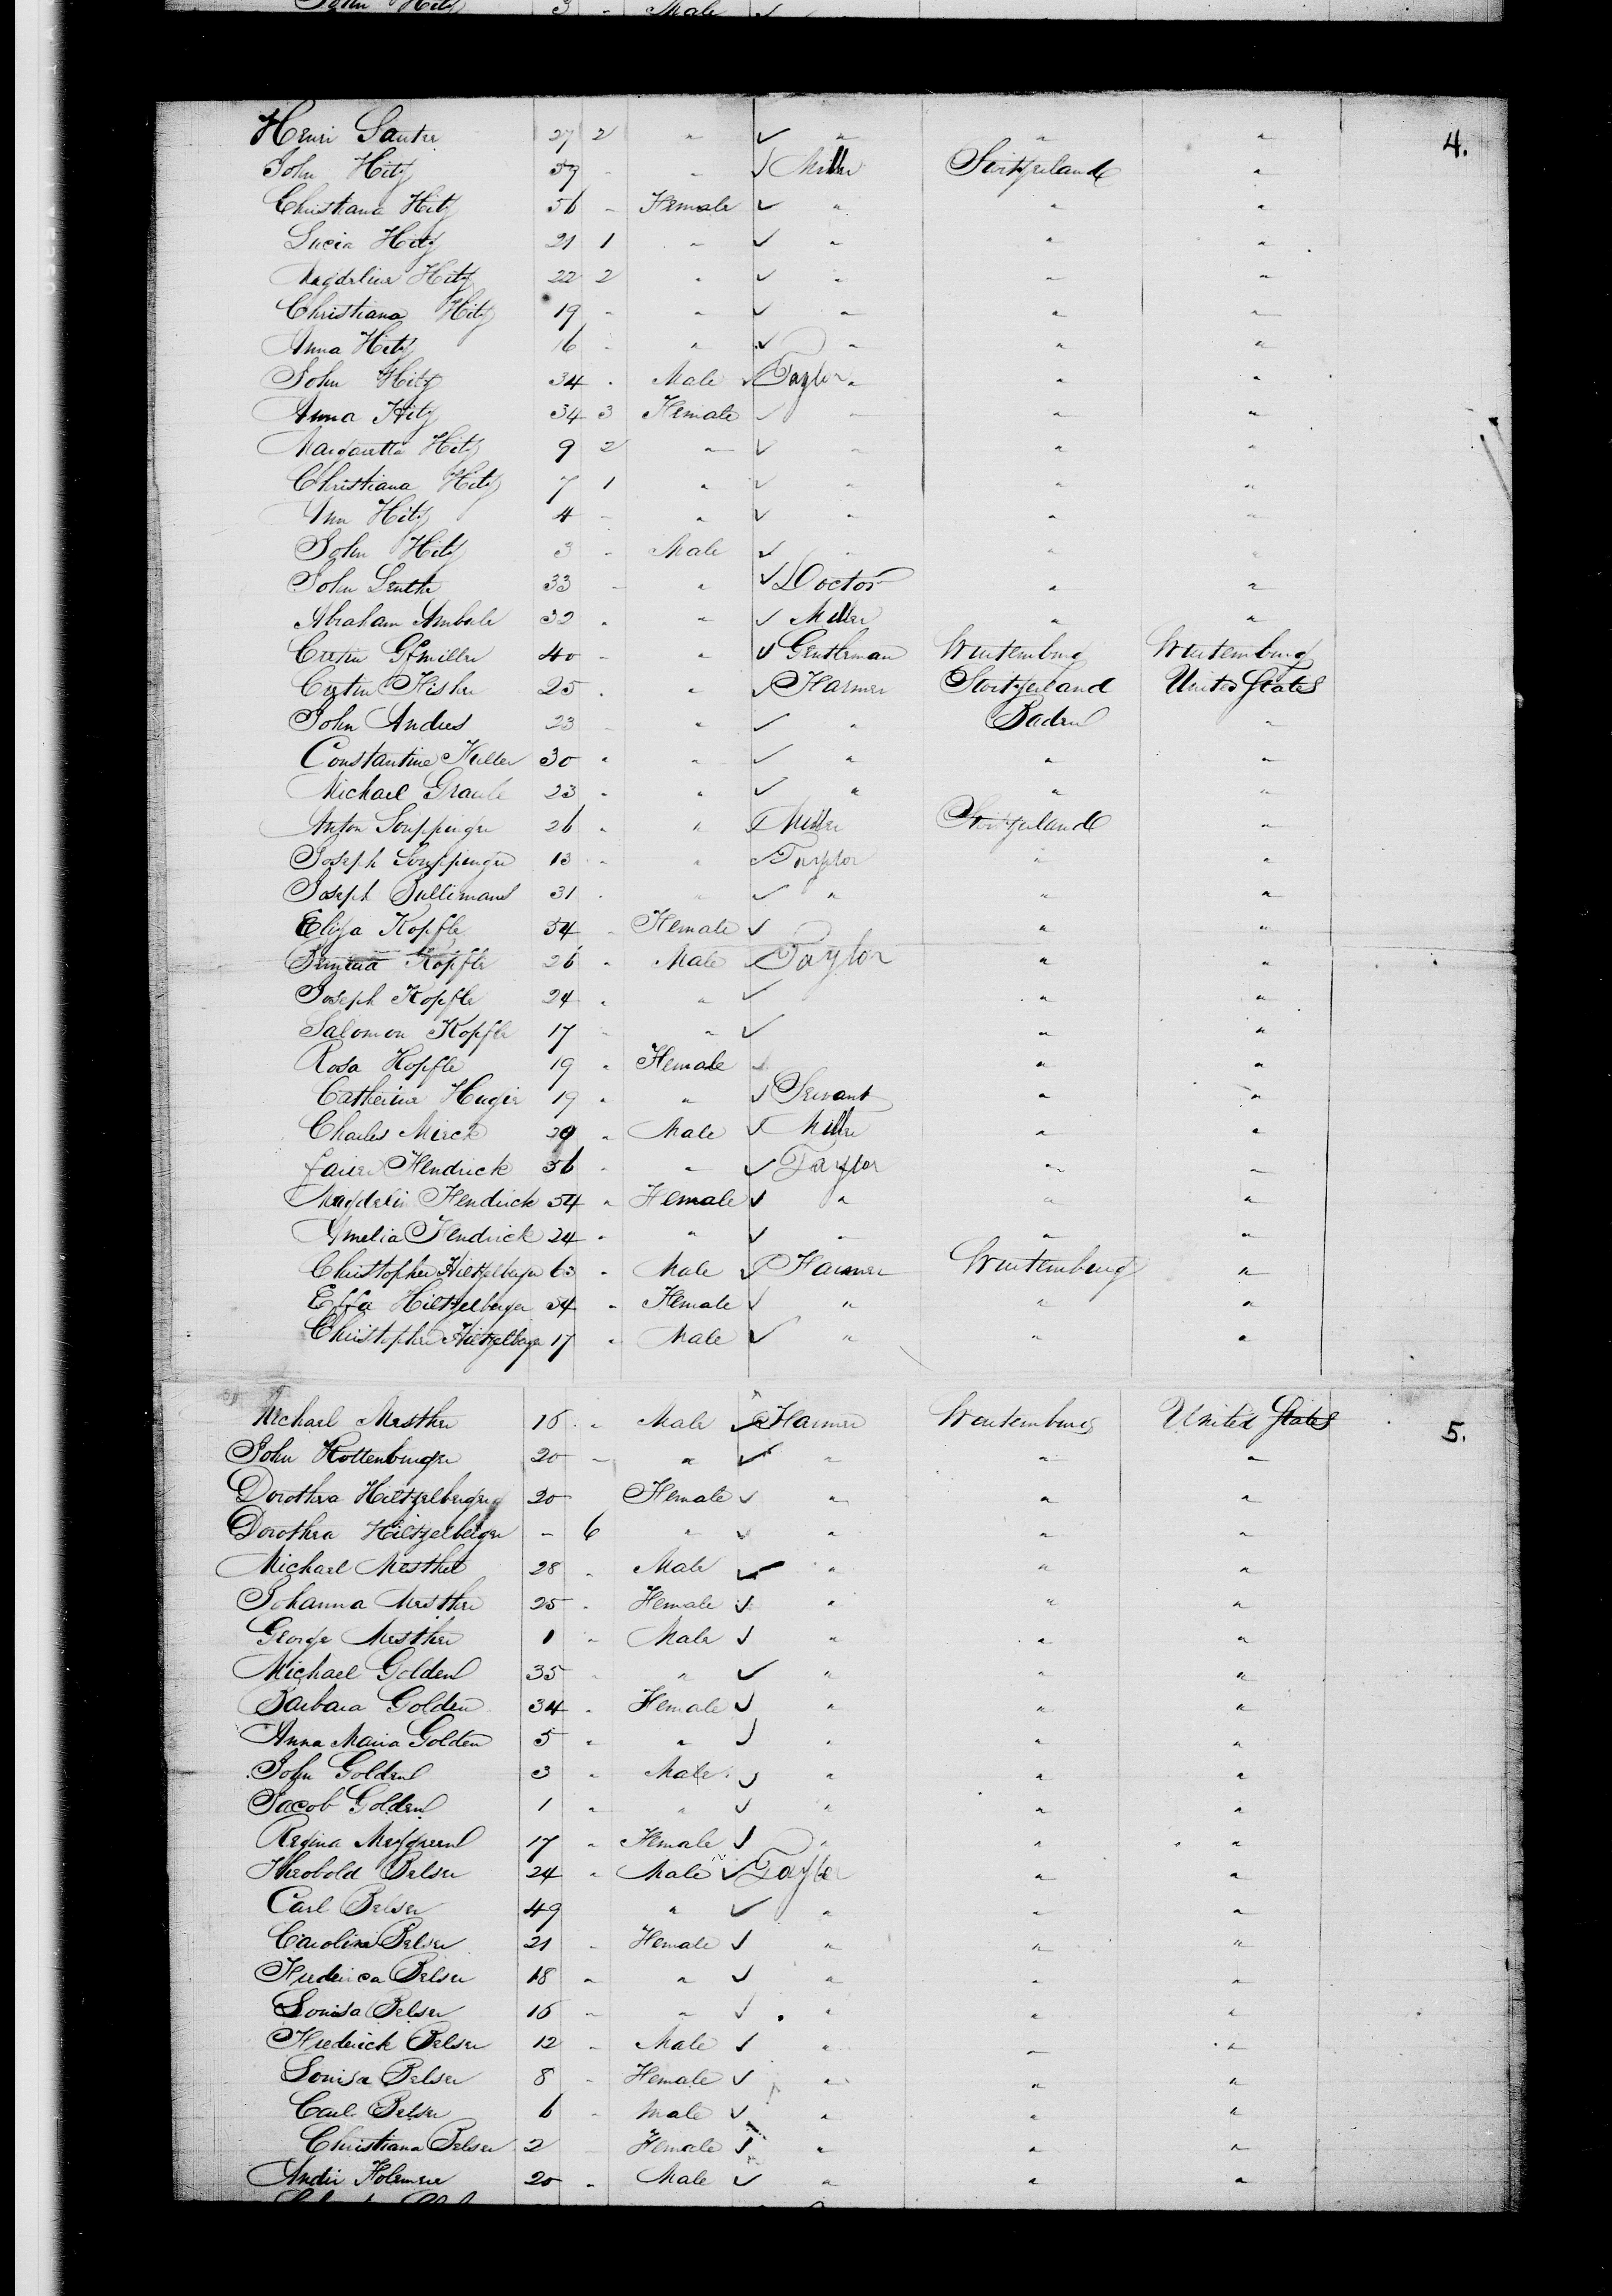 John Hitz 3 " Male ✓
Henri Sauter 27 2 " ✓ " " " 4.
John Hitz 59 - " ✓ Miller Switzerland "
Christiana Hitz 56 - Female ✓ " " "
Lucia Hitz 21 1 " ✓ " " "
Magdalina Hitz 22 2 " ✓ " " "
Christiana Hitz 19 - " ✓ " " "
Anna Hitz 16 - " ✓ " " "
John Hitz 34 " Male ✓ Taylor " " "
Anna Hitz 34 3 Female ✓ " " "
Margaretta Hitz 9 2 " ✓ " " "
Christiana Hitz 7 1 " ✓ " " "
Ann Hitz 4 - " ✓ " " "
John Hitz 3 - Male ✓ " " "
John 33 - " ✓ Doctor " "
Abraham 32 " " ✓ Miller " "
40 - " ✓ Gentleman Wurtemburg Wurtemburg
Fisher 25 " " ✓ Farmer Switzerland United States
John Andres 23 - " ✓ " Baden "
Constantine Keller 30 " " ✓ " " "
Michael 23 " " ✓ " " "
Anton Souppinger 26 " " ✓ Miller Switzerland "
Joseph Souppinger 13 " " ✓ Taylor " "
Joseph Bullimann 31 " " ✓ " " "
Eliza Kopfle 54 - Female ✓ " "
Kopfle 26 " Male ✓ Taylor " "
Joseph Kopfle 24 " " ✓ " "
Salomon Kopfle 17 - " ✓ " "
Rosa Kopfle 19 " Female ✓ " "
Catherina 19 " " ✓ Servant " "
Charles Merck 29 " Male ✓ Miller " "
Hendrick 56 - " ✓ Taylor " "
Magdalin Hendrick 54 " Female ✓ " " "
Amelia Hendrick 24 " " ✓ " " "
Christopher Hiltzelberger 63 " Male ✓ Farmer Wurtemburg "
Effa Hiltzelberger 54 " Female ✓ " " "
Christopher Hiltzelberger 17 " Male ✓ " " "
Michael Mesther 16 " Male ✓ Farmer Wurtemburg United States 5.
John Rottenburger 20 - " ✓ " " "
Dorothea Hiltzelberger 20 Female ✓ " " "
Dorothea Hiltzelberger - 6 " ✓ " " "
Michael Mesther 28 " Male ✓ " " "
Johanna Mesther 25 " Female ✓ " " "
George Mesther 1 " Male ✓ " " "
Michael Golden 35 - " ✓ " " "
Barbara Golden 34 " Female ✓ " " "
Anna Maria Golden 5 " " ✓ " " "
John Golden 3 " Male ✓ " " "
Jacob Golden 1 " " ✓ " " "
Regina 17 " Female ✓ " " "
Theobold Belser 24 " Male ✓ Taylor " "
Carl Belser 49 " ✓ " " "
Carolina Belser 21 - Female ✓ " " "
Frederica Belser 18 " " ✓ " " "
Louisa Belser 16 - " ✓ " " "
Frederick Belser 12 - Male ✓ " " "
Louisa Belser 8 - Female ✓ " " "
Carl Belser 6 - Male ✓ " " "
Christiana Belser 2 - Female ✓ " " "
20 " Male ✓ " " "